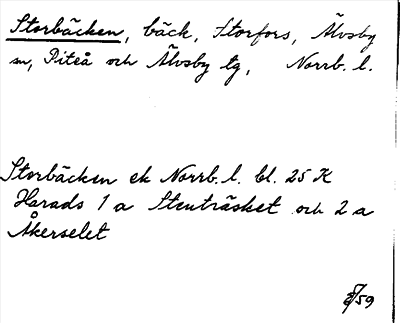 Storbäcken, bäck, Storfors, Älvsby
sn, Piteå och Älvsby tg, Norrb. l.
Storbäcken ek Norrb. l. bl. 25 K
Harads 1 a Stenträsket och 2 a
Åkerselet
/59